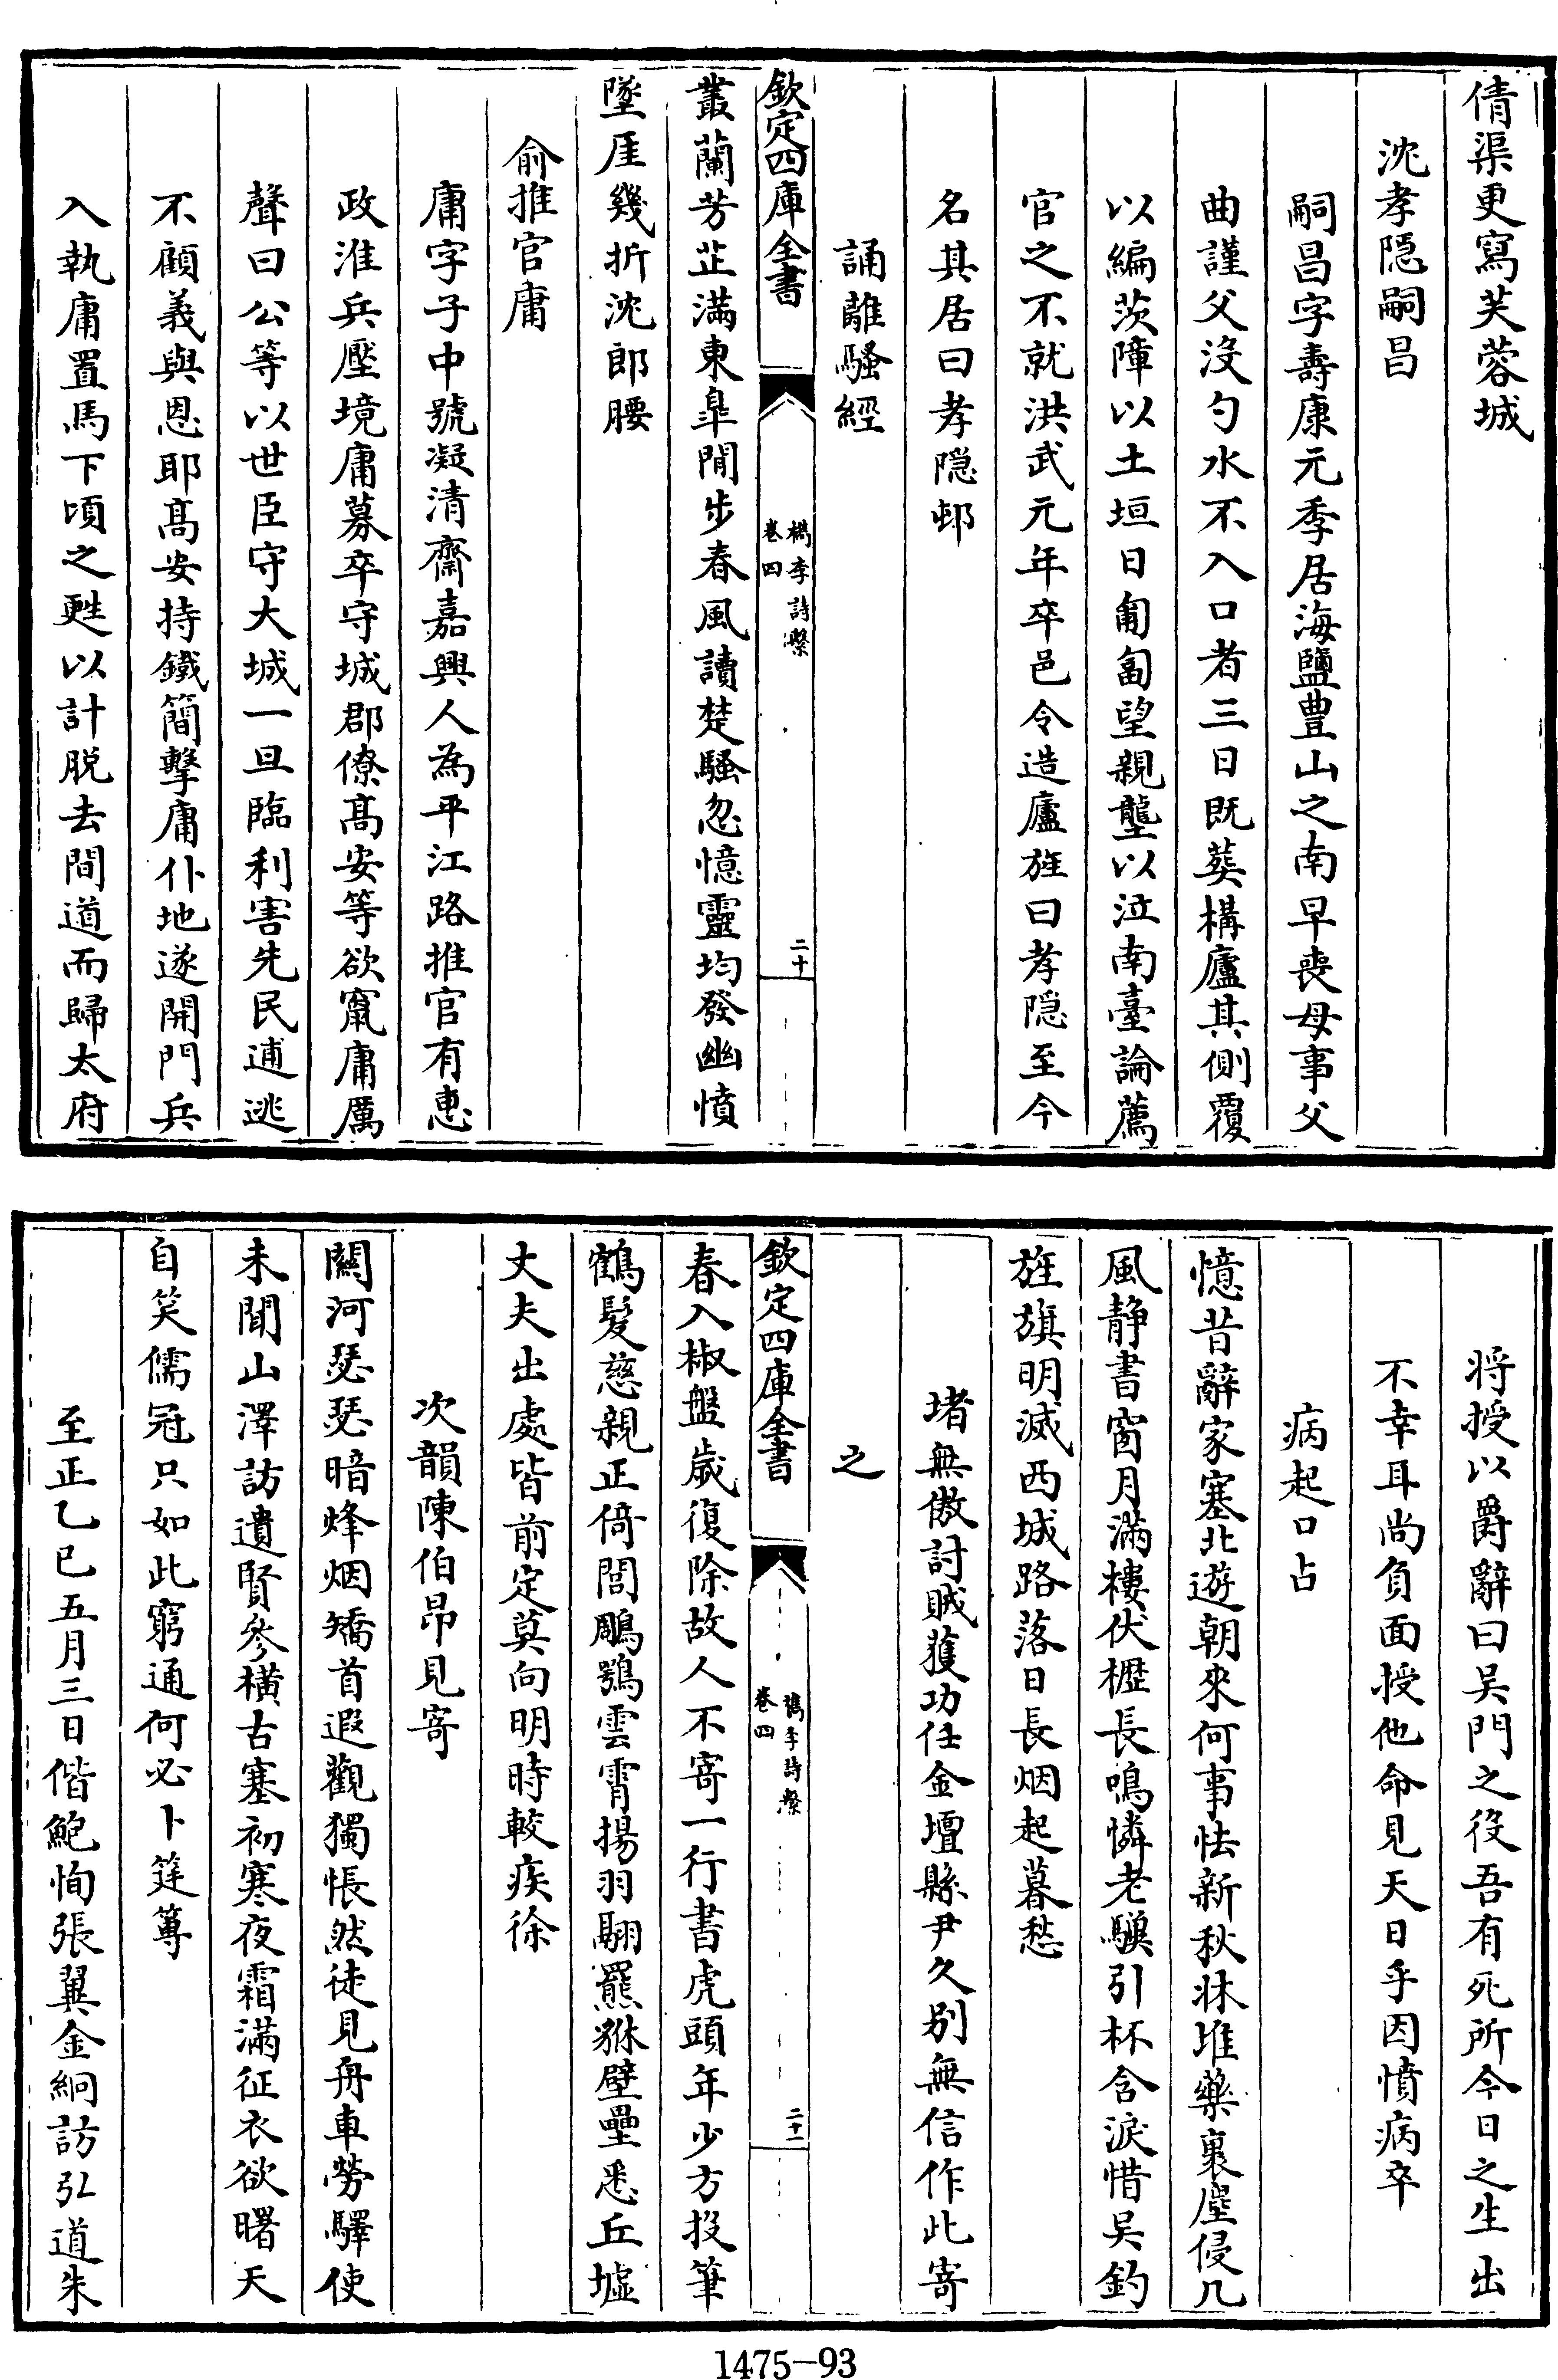 倩渠更寫芙蓉城
沈孝隠嗣昌
嗣昌字壽康元季居海鹽豊山之南早喪母事父
曲謹父沒勺水不入口者三日既葬構廬其側覆
以編茨障以土垣日匍匐望親壟以泣南臺論薦
官之不就洪武元年卒邑令造廬旌曰孝隠至今
名其居曰孝隠邨
誦離騷經
欽定四庫全書
檇李詩繫
卷四
二十
叢蘭芳芷滿東臯閒步春風讀楚騷忽憶靈均發幽憤
墜厓幾折沈郎腰
俞推官庸
庸字子中號凝清齋嘉興人為平江路推官有惠
政淮兵壓境庸募卒守城郡僚髙安等欲竄庸厲
聲曰公等以世臣守大城一旦臨利害先民逋逃
不顧義與恩耶髙安持鐵簡擊庸仆地遂開門兵
入執庸置馬下頃之甦以計脱去間道而歸太府
将授以爵辭曰吳門之役吾有死所今日之生出
不幸耳尚負面授他命見天日乎因憤病卒
病起口占
憶昔辭家塞北遊朝來何事怯新秋牀堆藥裹塵侵几
風静書窗月滿樓伏櫪長鳴憐老驥引杯含淚惜吳鈎
旌旗明滅西城路落日長烟起暮愁
堵無傲討賊獲功任金壇縣尹久别無信作此寄
之
欽定四庫全書
檇李詩繫
卷四
二十一
春入椒盤歲復除故人不寄一行書虎頭年少方投筆
鶴髮慈親正倚閭鵰鶚雲霄揚羽翮羆貅壁壘悉丘墟
丈夫出處皆前定莫向明時較疾徐
次韻陳伯昂見寄
關河瑟瑟暗烽烟矯首遐觀獨悵然徒見舟車勞驛使
未聞山澤訪遺賢參横古塞初寒夜霜滿征衣欲曙天
自笑儒冠只如此窮通何必卜筳篿
至正乙巳五月三日偕鮑恂張翼金絅訪弘道朱
1475-93